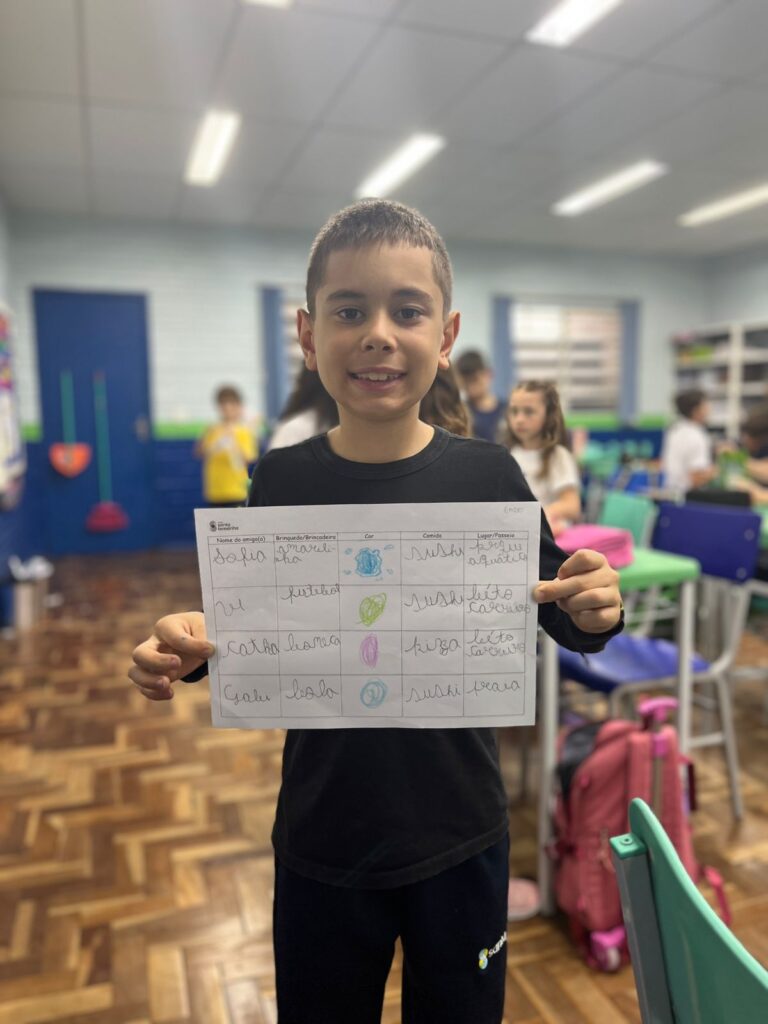 Nome do amigo(a) Brinquedo/Brincadeira Cor Comida Lugar/Passeio
Sofia amareli- sushi
nha aquático
Vi futebol sushi béto
carreiro
Catha boneca pizza béto
carreiro
Gabi bola sushi praia